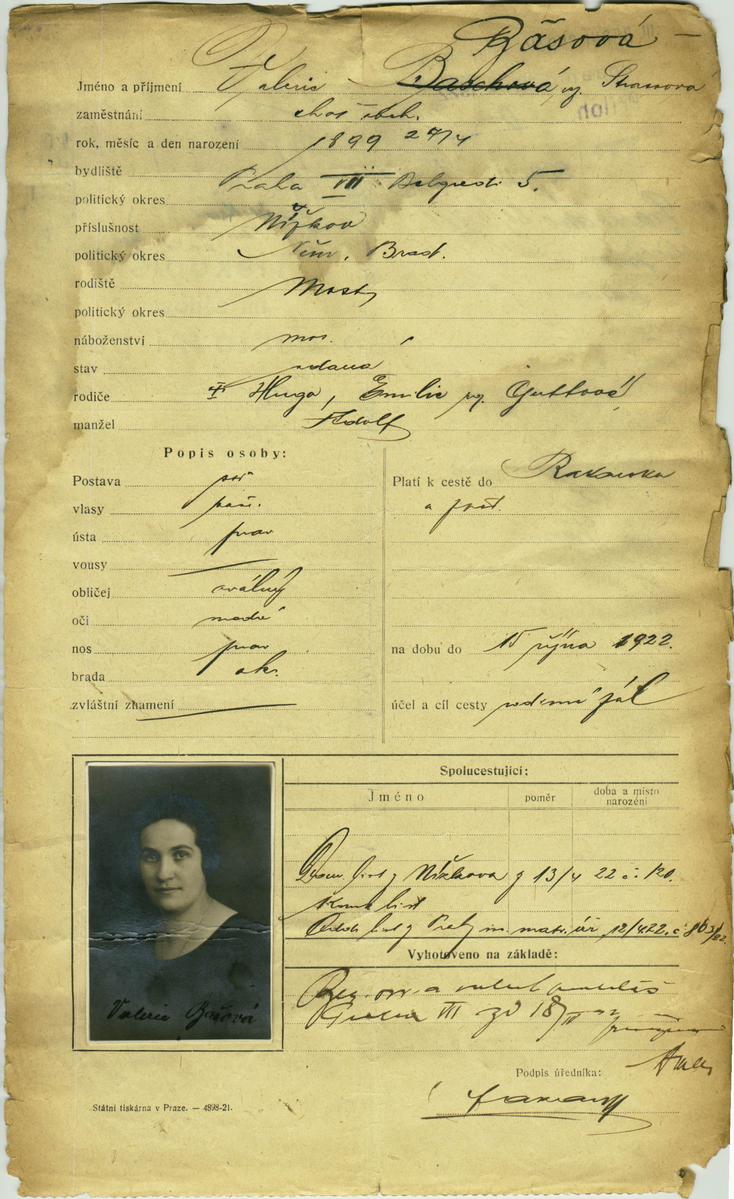 Bäsová
Jméno a příjmení Valerie Baschová roz. Strassová
zaměstnání choť obch.
rok, měsíc a den narození 1899 27/4
bydliště Praha VII Belgredi 5.
politický okres
příslušnost Nížkov
politický okres Něm. Brod.
rodiště Mosty
politický okres
náboženství mos.
stav vdaná
rodiče Hugo, Emilie roz. Guttová
manžel Adolf
Popis osoby:
Postava stř
vlasy
ústa prav
vousy
obličej oválný
oči modré
nos prav
brada ok.
zvláštní znamení
Platí k cestě do Rakouska
a zpět.
na dobu do 15 října 1922.
účel a cíl cesty rodinné zál
Spolucestující:
Jméno poměr doba a místo narození
Dom. list z Nížkova z 13/4 22 č. 120.
list
list z Prahy 12/4 22. č.
Vyhotoveno na základě:
18/
Valerie Bašová
Podpis úředníka:
Státní tiskárna v Praze. — 4898-21.